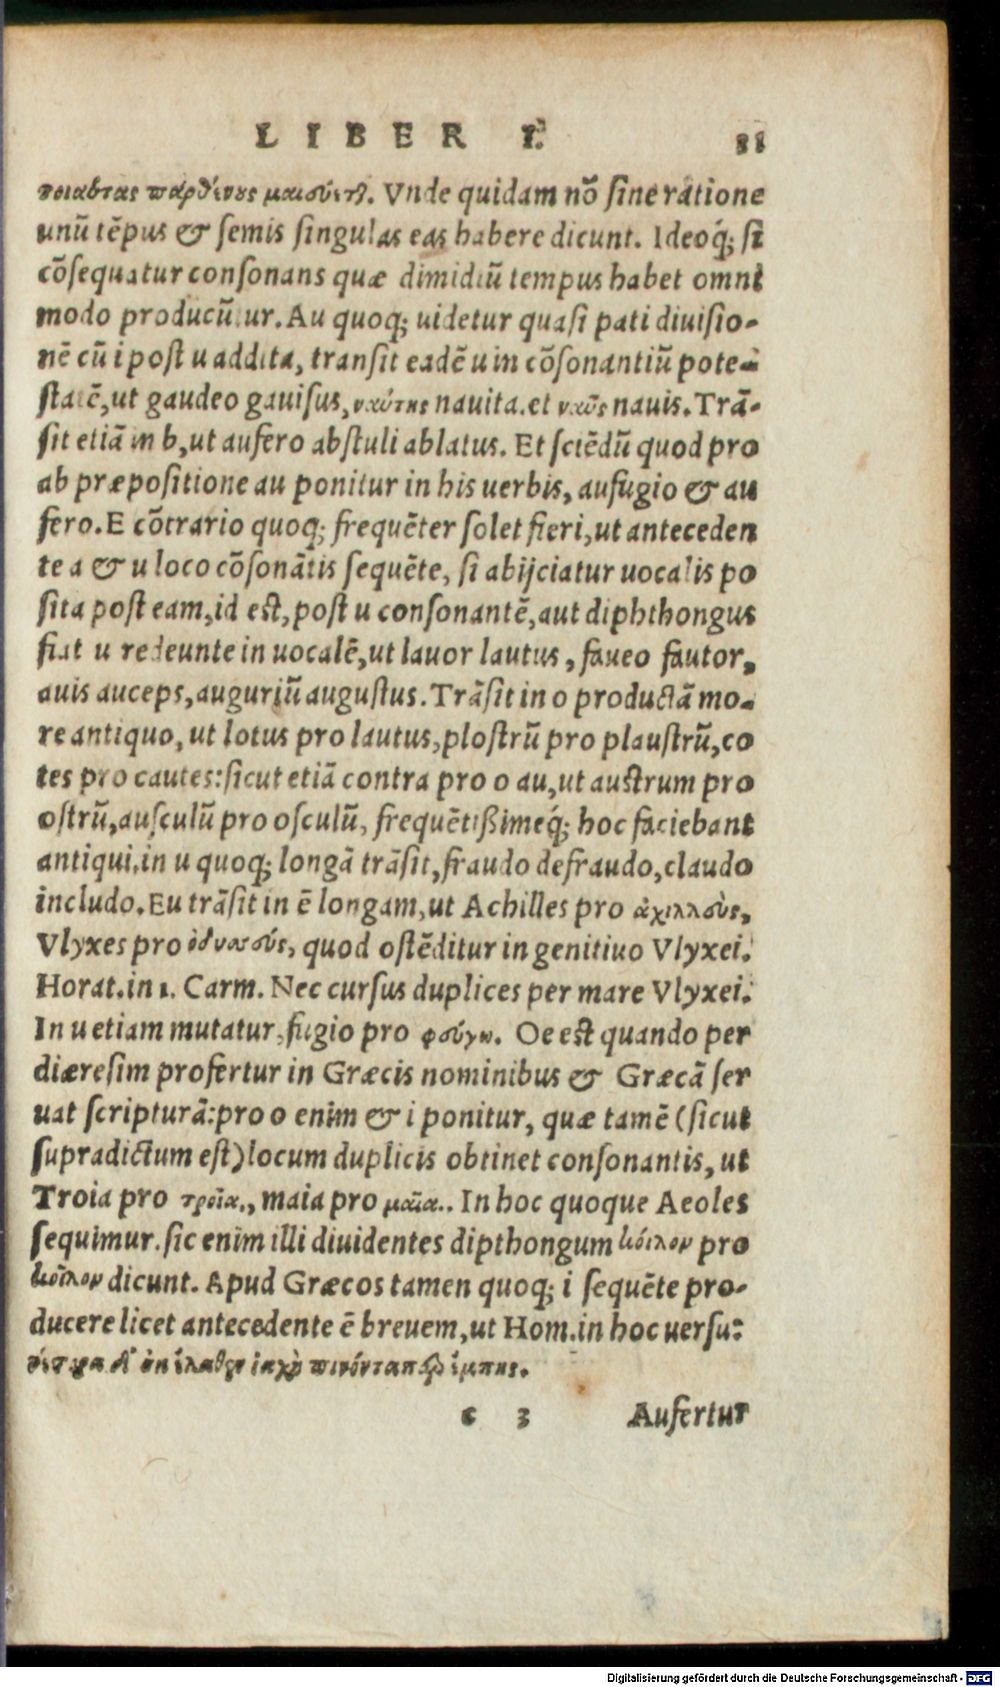 LIBER I.
τοιαύτας παρθένος Vnde quidam nõ sine ratione
unũ tẽpus & semis singulas eas habere dicunt. Ideoq́; si
cõsequatur consonans quæ dimidiũ tempus habet omni
modo producũtur. Au quoq; uidetur quasi pati diuisio-
nẽ cũ i post u addita, transit eadẽ u in cõsonantiũ pote-
statẽ, ut gaudeo gauisus, ναύτης nauita. et ναῦς nauis. Trã-
sit etiã in b, ut aufero abstuli ablatus. Et sciẽdũ quod pro
ab præpositione au ponitur in his uerbis, aufugio & au
fero. E cõtrario quoq; frequẽter solet fieri, ut anteceden
te a & u loco cõsonãtis sequẽte, si abijciatur uocalis po
sita post eam, id est, post u consonantẽ, aut diphthongus
fiat u redeunte in uocalẽ, ut lauor lautus, faueo fautor,
auis auceps, auguriũ augustus. Trãsit in o productã mo-
re antiquo, ut lotus pro lautus, plostrũ pro plaustrũ, co
tes pro cautes: sicut etiã contra pro o au, ut austrum pro
ostrũ, ausculũ pro osculũ, frequẽtißimeq́; hoc faciebant
antiqui. in u quoq; longã trãsit, fraudo defraudo, claudo
includo. Eu trãsit in ẽ longam, ut Achilles pro ἀχιλλεὺς,
Vlyxes pro ὀδυσσεύς, quod ostẽditur in genitiuo Vlyxei.
Horat. in 1. Carm. Nec cursus duplices per mare Vlyxei.
In u etiam mutatur, fugio pro φεύγω. Oe est quando per
diæresim profertur in Græcis nominibus & Græcã ser
uat scripturã: pro o enim & i ponitur, quæ tamẽ (sicut
supradictum est) locum duplicis obtinet consonantis, ut
Troia pro τροῖα., maia pro μαῖα.. In hoc quoque Aeoles
sequimur. sic enim illi diuidentes dipthongum κόιλον pro
κοῖλον dicunt. Apud Græcos tamen quoq; i sequẽte pro-
ducere licet antecedente ẽ breuem, ut Hom. in hoc uersu:
νέστορα δ' οὐκ ἔλαθεν ἰαχὴ πινόντα περ ἔμπης.
c 3 Aufertur
Digitalisierung gefördert durch die Deutsche Forschungsgemeinschaft - DFG